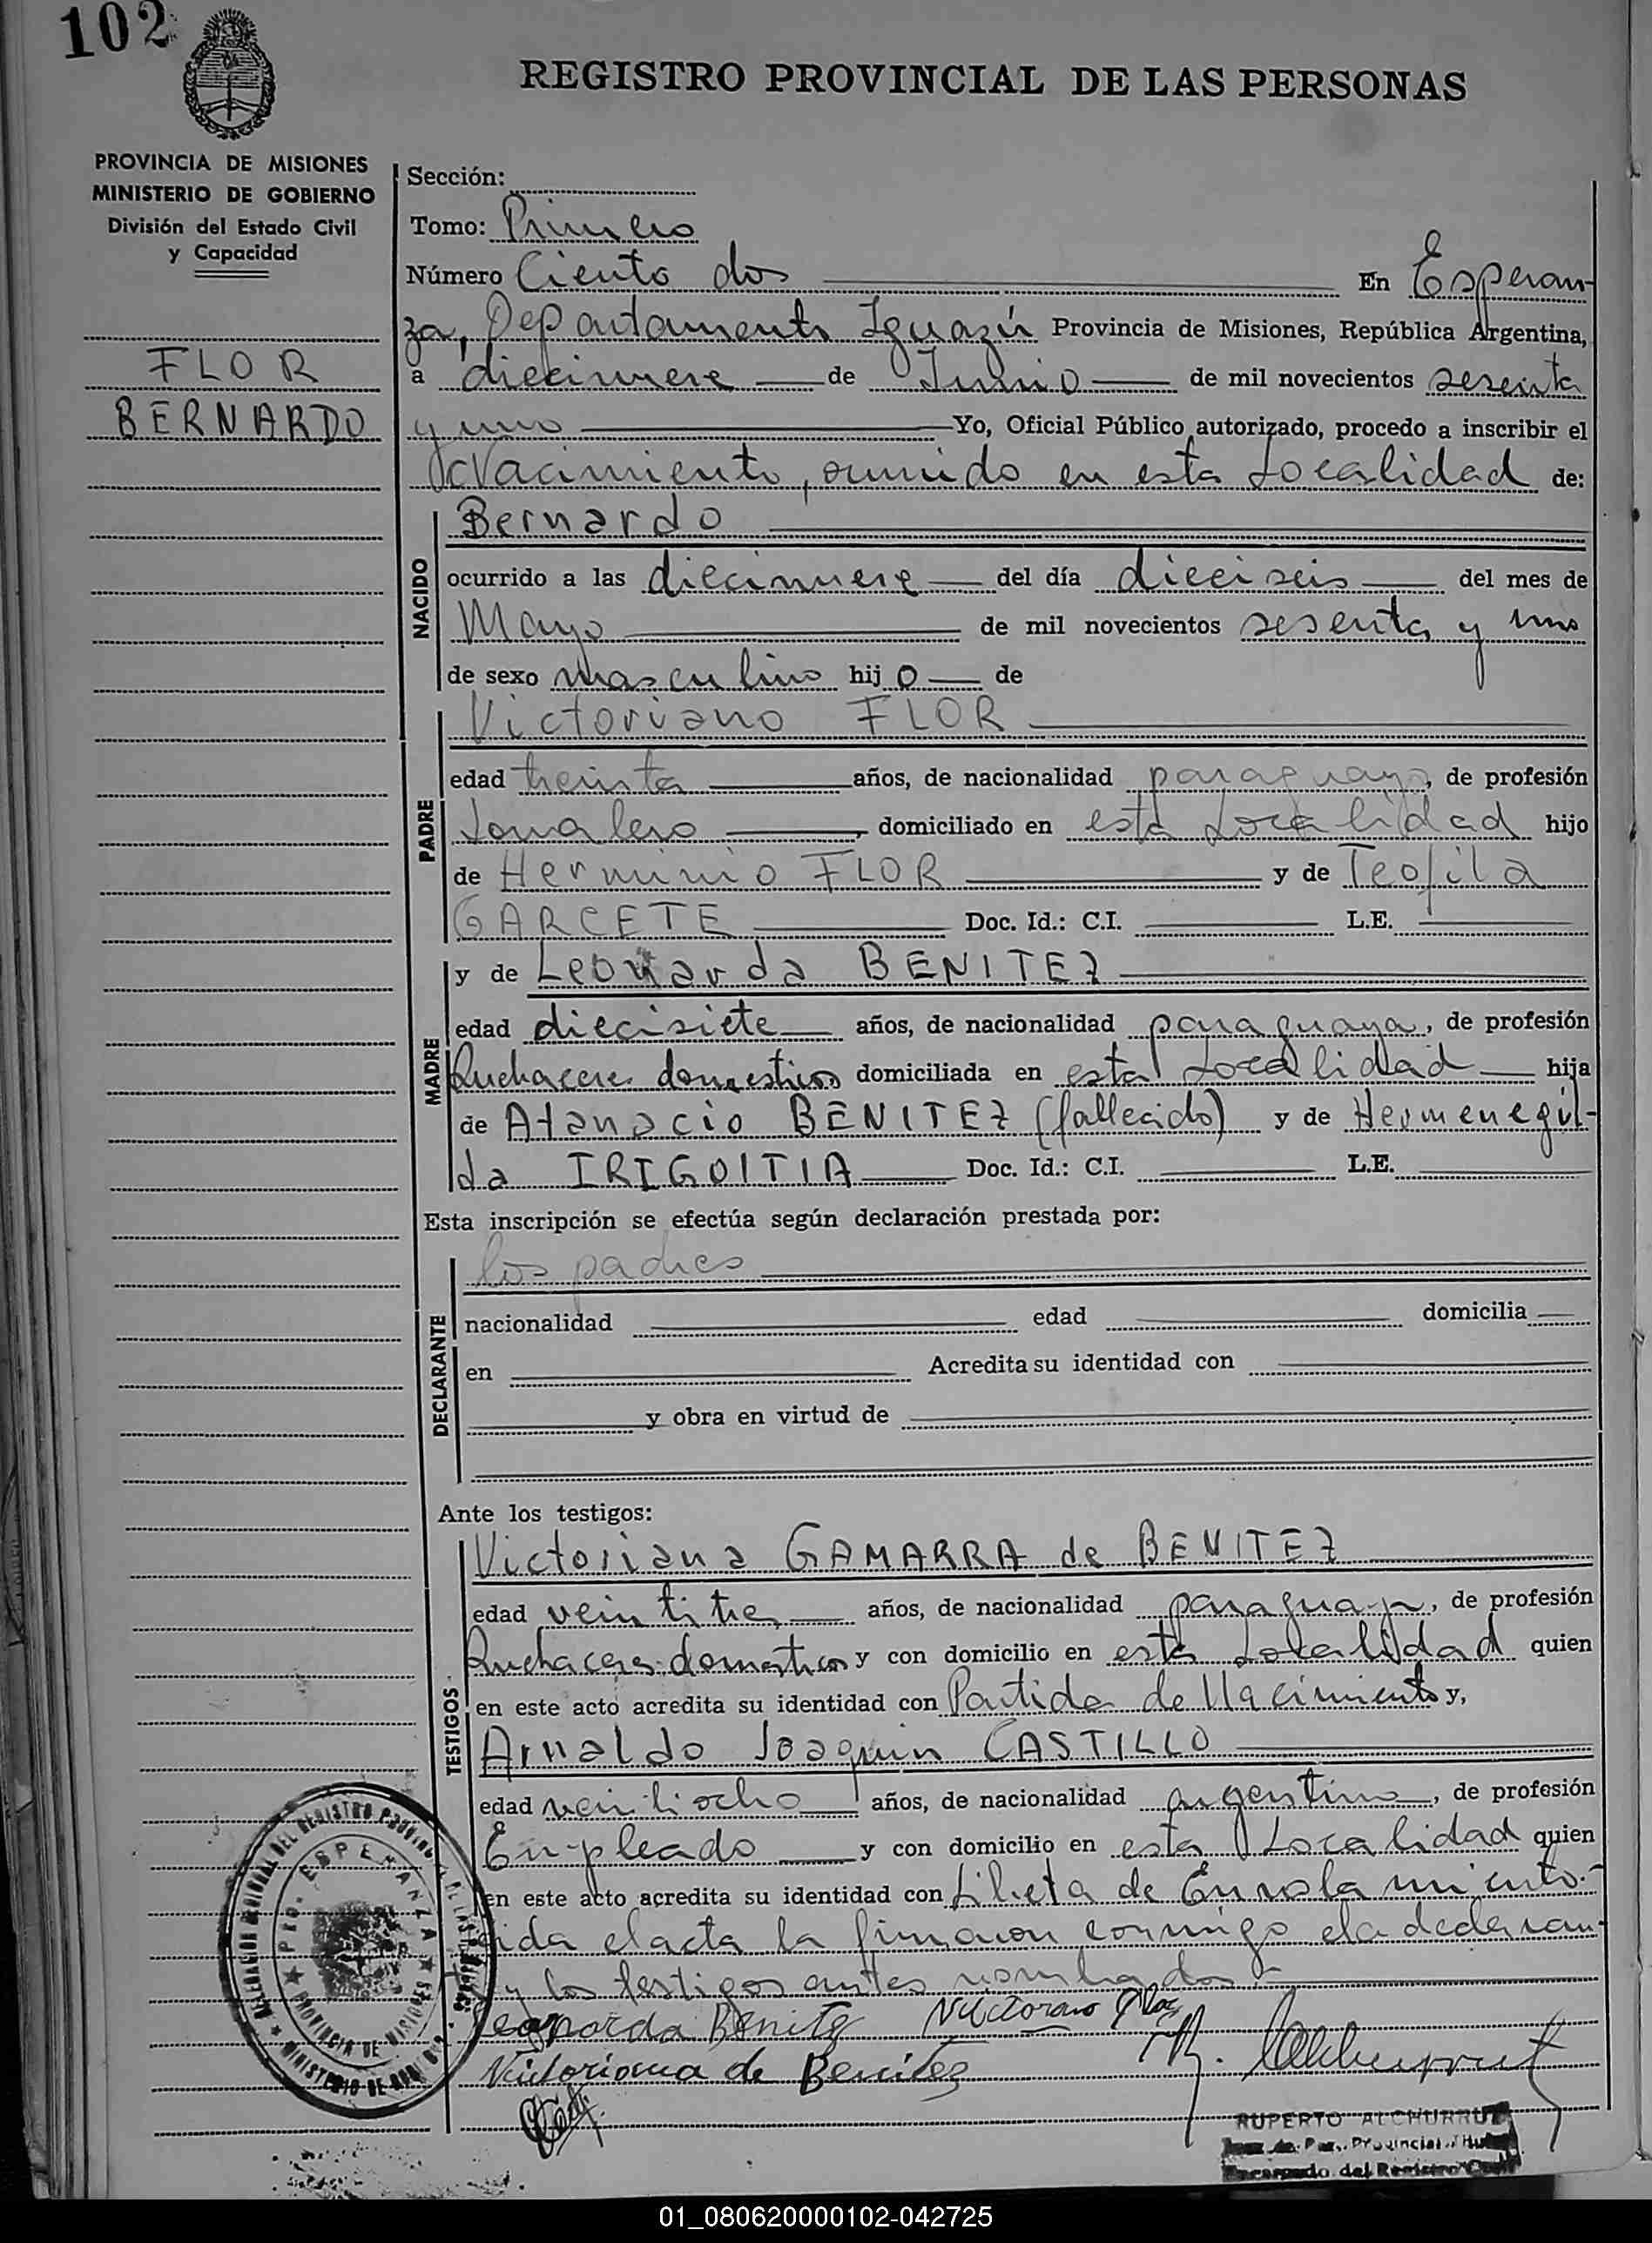 102
REGISTRO PROVINCIAL DE LAS PERSONAS
PROVINCIA DE MISIONES
MINISTERIO DE GOBIERNO
División del Estado Civil
y Capacidad
FLOR
BERNARDO
Sección:
Tomo: Primero
Número Ciento dos En Esperan-
za, Departamento Iguazú Provincia de Misiones, República Argentina,
a diecinueve de Junio de mil novecientos sesenta
y uno Yo, Oficial Público autorizado, procedo a inscribir el
Nacimiento, ocurrido en esta Localidad de:
NACIDO
Bernardo
ocurrido a las diecinueve del día dieciseis del mes de
Mayo de mil novecientos sesenta y uno
de sexo masculino hijo de
PADRE
Victoriano FLOR
edad treinta años, de nacionalidad paraguayo, de profesión
Jornalero, domiciliado en esta Localidad hijo
de Herminio FLOR y de Teofila
GARCETE Doc. Id.: C.I. L.E.
MADRE
y de Leonarda BENITEZ
edad diecisiete años, de nacionalidad paraguaya, de profesión
Quehaceres domesticos domiciliada en esta Localidad hija
de Atanacio BENITEZ (fallecido) y de Hermenegil-
da IRIGOITIA Doc. Id.: C.I. L.E.
Esta inscripción se efectúa según declaración prestada por:
DECLARANTE
los padres
nacionalidad edad domicilia
en Acredita su identidad con
y obra en virtud de
Ante los testigos:
TESTIGOS
Victoriana GAMARRA de BENITEZ
edad veintitres años, de nacionalidad paraguaya, de profesión
Quehaceres domesticos y con domicilio en esta Localidad quien
en este acto acredita su identidad con Partida de Nacimiento y,
Arnaldo Joaquin CASTILLO
edad veintiocho años, de nacionalidad argentino, de profesión
Empleado y con domicilio en esta Localidad quien
en este acto acredita su identidad con Libreta de Enrolamiento.-
el acta la firmaron conmigo
y los testigos antes nombrados.-
Leonarda Benitez Victoriano Flor
Victoriana de Benitez
RUPERTO ALCHURRUT
Juez de Paz Provincial Titular
Encargado del Registro Civil
PTO. ESPERANZA
PROVINCIA DE MISIONES
01_080620000102-042725